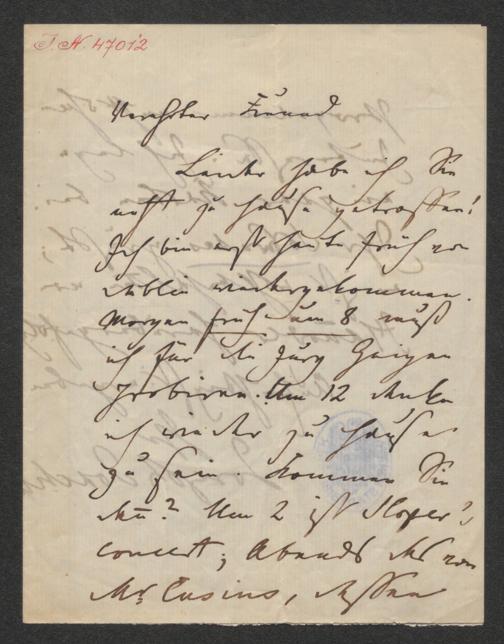 I. N. 47012
Verehrter Freund
Leider habe ich Sie
nicht zu Hause getroffen!
Ich bin erst heute früh von
Dublin wiedergekommen.
Morgen früh um 8 muß
ich für die Jury Geigen
probiren. Um 12 denke
ich wieder zu Hause
zu sein. Kommen Sie
da? Um 2 ist Sloper's
Concert; Abends das von
Mr Cusins, dessen